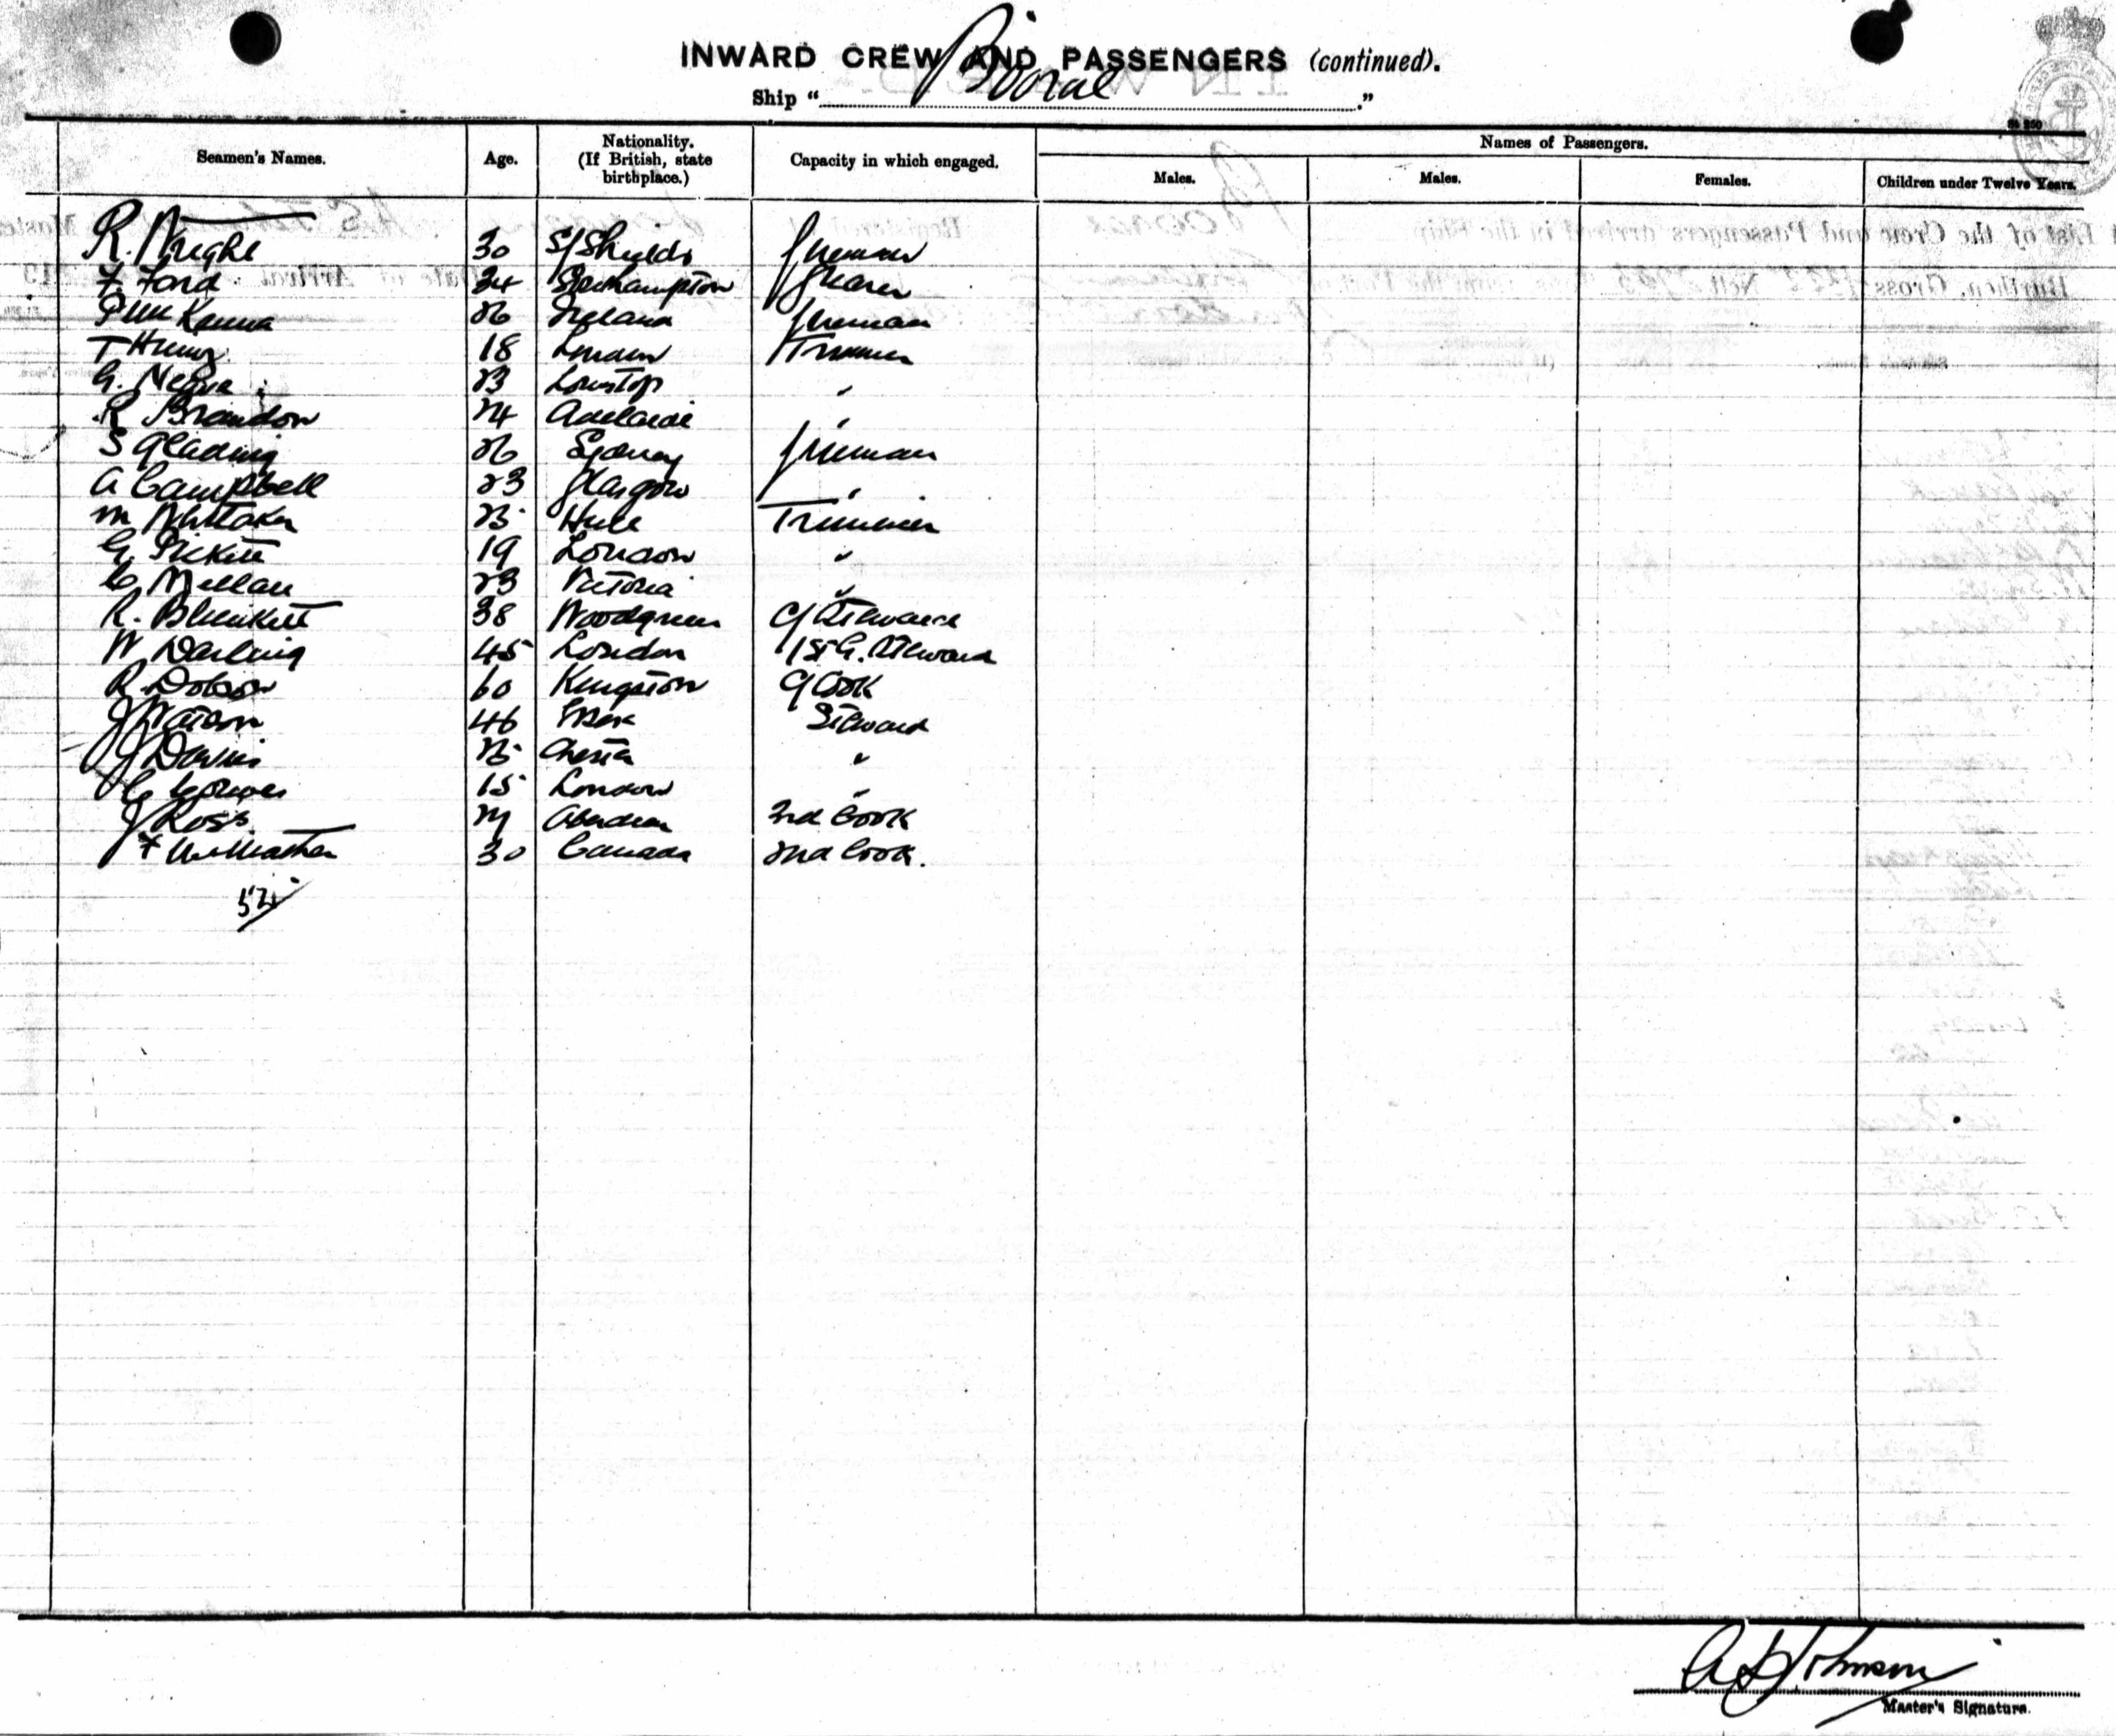 INWARD CREW AND PASSENGERS (continued).
Ship "Booral."
Seamen's Names. Age. Nationality. (If British, state birthplace.) Capacity in which engaged. Names of Passengers.
Males. Males. Females. Children under Twelve Years.
R. Wright 30 S/Shields fireman
F Ford 34 greaser
26 Ireland fireman
T 18 London Trimmer
G. 23 "
R Brandon 24 Adelaide "
S Glading 26 Sydney fireman
A Campbell 23 Glasgow "
M Whittaker Hull Trimmer
G. Pickett 19 London "
C Mellan 23 Victoria "
R. Blunkett 38 Woodgreen C/Steward
W Darling 45 London Steward
R. Dobson 60 Kingston Cook
J Watson 46 Steward
J Davies Chester "
C 15 London "
J Ross Aberdeen 3rd Cook
F 30 Canada 2nd Cook.
52
Johnson
Master's Signature.